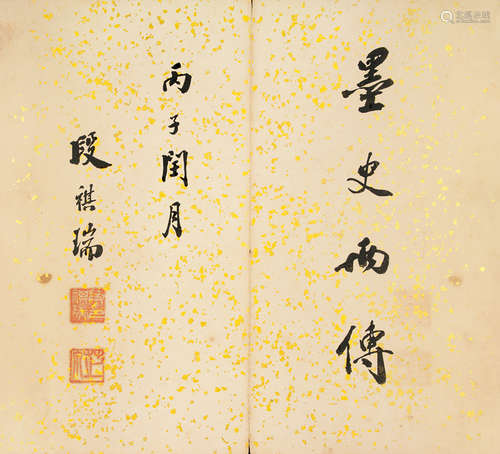 墨史兩傳
丙子閏月
段祺瑞